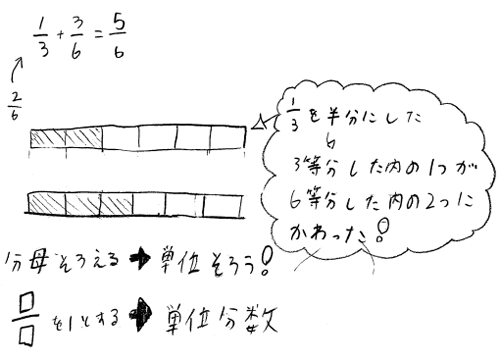 1/3 + 3/6 = 5/6
2/6
1/3を半分にした
6
3等分した内の1つが
6等分した内の2つに
かわった!
分母そろえる➡単位そろう!
□/□を1とする➡単位分数